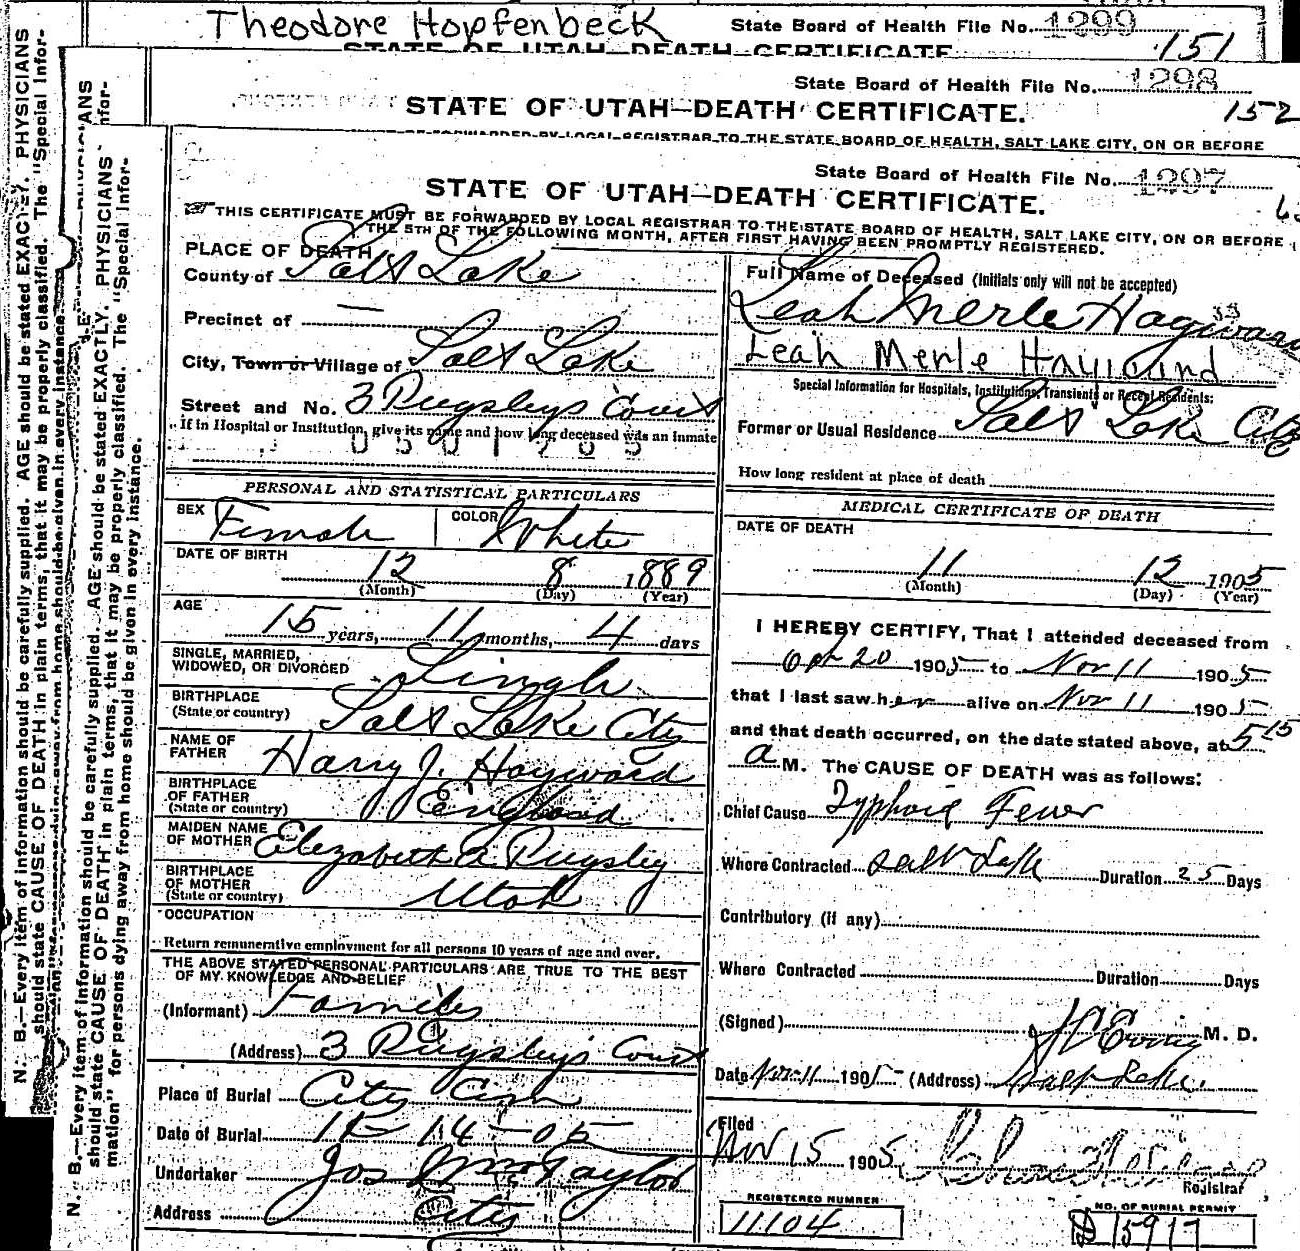 Theodore Hopfenbeck State Board of Health File No. 1299
151
STATE OF UTAH—DEATH CERTIFICATE.
State Board of Health File No. 1298
STATE OF UTAH—DEATH CERTIFICATE. 152
FORWARDED BY LOCAL REGISTRAR TO THE STATE BOARD OF HEALTH, SALT LAKE CITY, ON OR BEFORE
State Board of Health File No. 1297
STATE OF UTAH—DEATH CERTIFICATE.
THIS CERTIFICATE MUST BE FORWARDED BY LOCAL REGISTRAR TO THE STATE BOARD OF HEALTH, SALT LAKE CITY, ON OR BEFORE
THE 5TH OF THE FOLLOWING MONTH, AFTER FIRST HAVING BEEN PROMPTLY REGISTERED.
PLACE OF DEATH
County of Salt Lake
Precinct of —
City, Town or Village of Salt Lake
Street and No. 3 Pugsleys Court
If in Hospital or Institution, give its name and how long deceased was an inmate
PERSONAL AND STATISTICAL PARTICULARS
SEX Female COLOR White
DATE OF BIRTH
12 8 1889
(Month) (Day) (Year)
AGE
15 years, 11 months, 4 days
SINGLE, MARRIED,
WIDOWED, OR DIVORCED Single
BIRTHPLACE
(State or country) Salt Lake City
NAME OF
FATHER Harry J. Hayward
BIRTHPLACE
OF FATHER
(State or country) England
MAIDEN NAME
OF MOTHER Elizabeth A Pugsley
BIRTHPLACE
OF MOTHER
(State or country) Utah
OCCUPATION
Return remunerative employment for all persons 10 years of age and over.
THE ABOVE STATED PERSONAL PARTICULARS ARE TRUE TO THE BEST
OF MY KNOWLEDGE AND BELIEF
(Informant)
(Address) 3 Pugsley's Court
Place of Burial City Cem
Date of Burial 11-14-05
Undertaker Jos Wm Taylor
Address City
Full Name of Deceased (Initials only will not be accepted)
Leah Merle Hayward
Leah Merle Hayward
Special Information for Hospitals, Institutions, Transients or Recent Residents:
Former or Usual Residence Salt Lake City
How long resident at place of death
MEDICAL CERTIFICATE OF DEATH
DATE OF DEATH
11 12 1905
(Month) (Day) (Year)
I HEREBY CERTIFY, That I attended deceased from
Oct 20 1905 to Nov 11 1905
that I last saw her alive on Nov 11 1905
and that death occurred, on the date stated above, at 5 15
a M. The CAUSE OF DEATH was as follows:
Chief Cause Typhoid Fever
Where Contracted Salt Lake Duration 25 Days
Contributory (if any)
Where Contracted Duration Days
(Signed) M. D.
Date Nov 11 1905 (Address) Salt Lake.
Filed
Nov 15 1905
Registrar
REGISTERED NUMBER
11104
NO. OF BURIAL PERMIT
15917
N. B.—Every item of information should be carefully supplied. AGE should be stated EXACTLY. PHYSICIANS
should state CAUSE OF DEATH in plain terms, that it may be properly classified. The "Special Infor-
N. B.—Every item of information should be carefully supplied. AGE should be stated EXACTLY. PHYSICIANS
should state CAUSE OF DEATH in plain terms, that it may be properly classified. The "Special Infor-
mation" for persons dying away from home should be given in every instance.